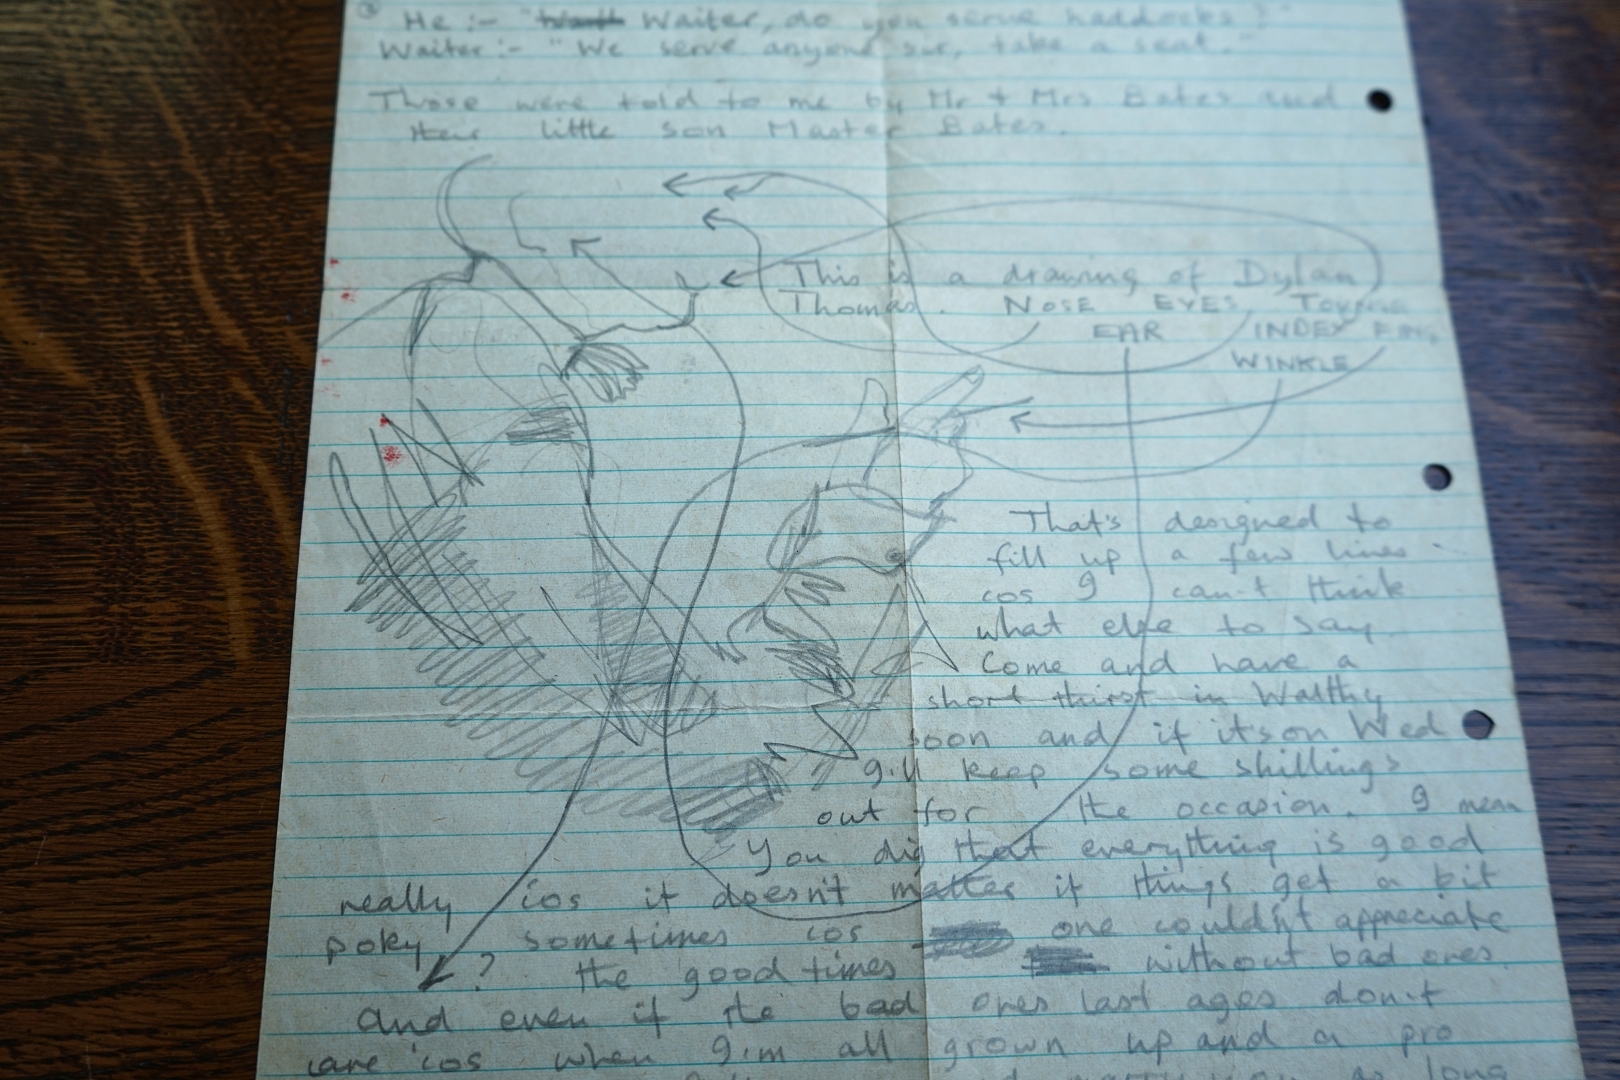 He :- "Waiter, do you serve haddocks?"
Waiter :- "We serve anyone sir, take a seat."
Those were told to me by Mr + Mrs Bates and
their little son Master Bates.
This is a drawing of Dylan
Thomas. NOSE EYES TONGUE
EAR INDEX FING.
WINKLE
That's designed to
fill up a few lines
cos I can't think
what else to say.
Come and have a
short thirst in Walthy
soon and if it's on Wed
I'll keep some shillings
out for the occasion. I mean
You dig that everything is good
really cos it doesn't matter if things get a bit
poky sometimes cos one couldn't appreciate
? the good times without bad ones
and even if the bad ones last ages don't
care 'cos when I'm all grown up and a pro
as long